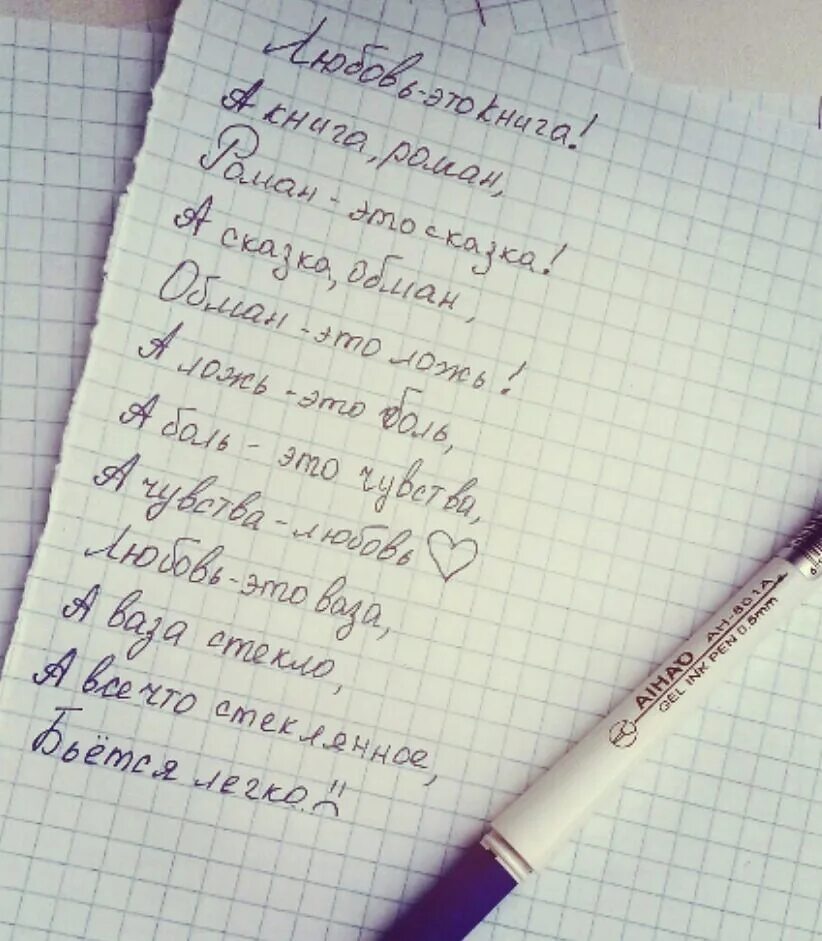 Любовь-это книга!
А книга, роман,
Роман - это сказка!
А сказка, обман,
Обман - это ложь!
А ложь - это боль,
А боль - это чувства,
А чувства - любовь ♡
Любовь-это ваза,
А ваза стекло,
А все что стеклянное,
Бьётся легко.
AIHAO AH-801A
GEL INK PEN 0.5mm